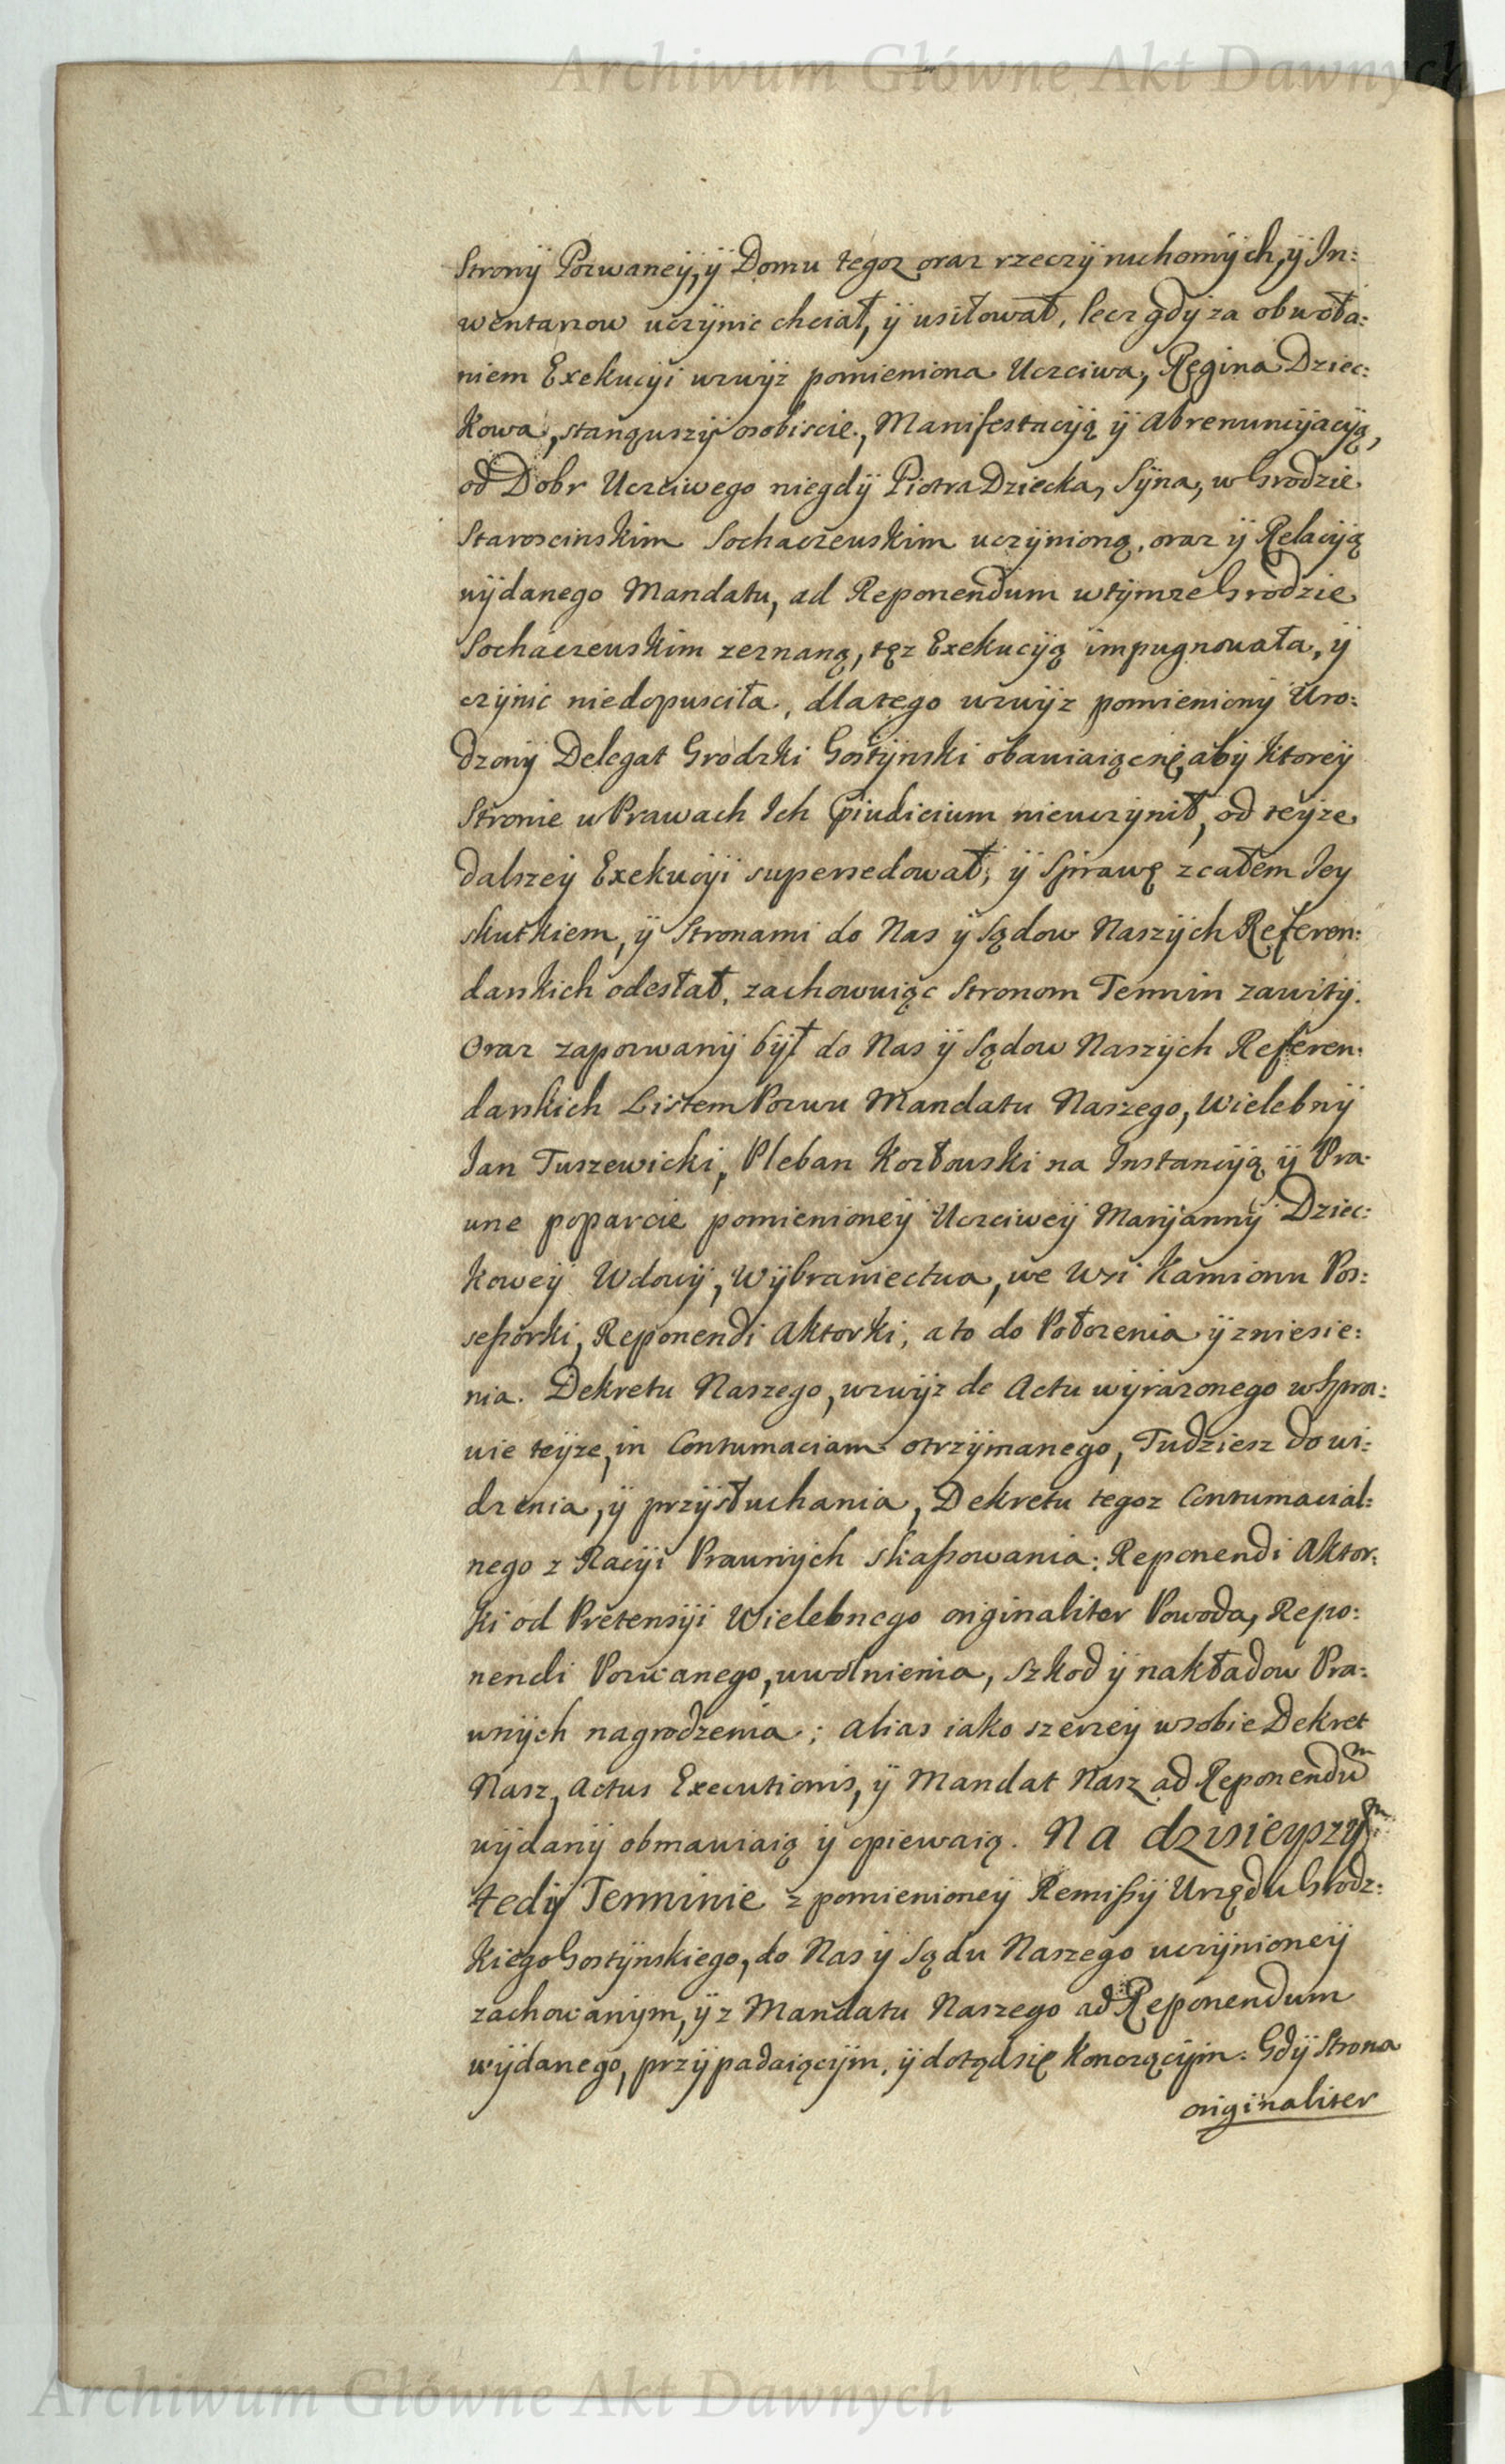 Archiwum Główne Akt Dawnych
Strony Pozwaneÿ, ÿ Domu tegoz oraz rzeczÿ ruchomÿch, ÿ In:
wentarzow uczÿnic chciał, ÿ usiłował, lecz gdÿ za obwoła:
niem Exekucÿi wzwÿz pomieniona Uczciwa, Regina Dziec:
kowa, stanąwszÿ osobiscie, Manifestacÿą ÿ Abrenuncÿacÿą,
od Dobr Uczciwego niegdÿ Piotra Dziecka, Sÿna, w Grodzie
Staroscinskim Sochaczewskim uczÿnioną, oraz ÿ Relacÿą
wÿdanego Mandatu, ad Reponendum wtÿmze Grodzie
Sochaczewskim zeznaną, tęz Exekucÿą impugnowała, ÿ
czÿnic niedopusciła, dlatego wzwÿz pomienionÿ Uro:
dzonÿ Delegat Grodzki Gostÿnski obawiaiącsię, abÿ ktoreÿ
Stronie w Prawach Ich piudicium nieuczÿnił, od teÿze
dalszeÿ Exekucÿi supersedował, ÿ Sprawę zcałem Jey
skutkiem, ÿ Stronami do Nas ÿ Sądow Naszÿch Referen:
darskich odesłał, zachowuiąc Stronom Termin zawitÿ.
Oraz zapozwanÿ bÿł do Nas ÿ Sądow Naszÿch Referen:
darskich Listem Pozwu Mandatu Naszego, Wielebnÿ
Jan Tuszewicki, Pleban Kozłowski na Instancÿą ÿ Pra:
wne poparcie pomienioneÿ Uczciweÿ Marÿannÿ Dziec:
koweÿ Wdowÿ, Wÿbraniectwa, we Wsi Kamionu Pos:
seßorki, Reponendi Aktorki, a to do Połozenia ÿ zniesie:
nia. Dekretu Naszego, wzwÿz de Actu wÿrazonego w Spra:
wie teÿze, in Contumaciam otrzÿmanego, Tudziesz do wi:
dzenia, ÿ przÿsłuchania, Dekretu tegoz Contumacial:
nego z Racÿi Prawnÿch skaßowania; Reponendi Aktor:
ki od Pretensÿi Wielebnego originaliter Powoda, Repo:
nendi Pozwanego, uwolnienia, Szkod ÿ nakładow Pra:
wnÿch nagrodzenia; alias iako szerzeÿ wsobie Dekret
Nasz, Actus Executionis, ÿ Mandat Nasz ad Reponendum
wÿdanÿ obmawiaią ÿ opiewaią. Na dzisieyszÿm
tedÿ Terminie z pomienioneÿ Remißÿ Urzędu Grodz:
kiego Gostÿnskiego, do Nas ÿ Sądu Naszego uczÿnioneÿ
zachowanÿm, ÿ z Mandatu Naszego ad Reponendum
wÿdanego, przÿpadaiącÿm, ÿ dotądsię konczącÿm. Gdÿ Strona
originaliter
Archiwum Główne Akt Dawnych